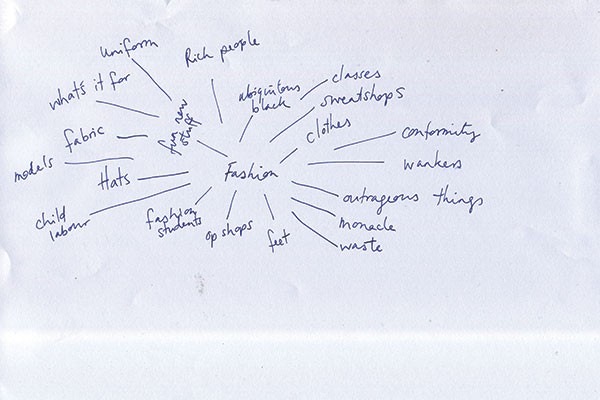 uniform
Rich people
what's it for
abiquitous
black
classes
sweatshops
fun new
stuff
clothes
fabric
conformity
models
Hats
Fashion
wankers
outrageous things
child
labour
fashion
students
op shops
feet
monacle
waste